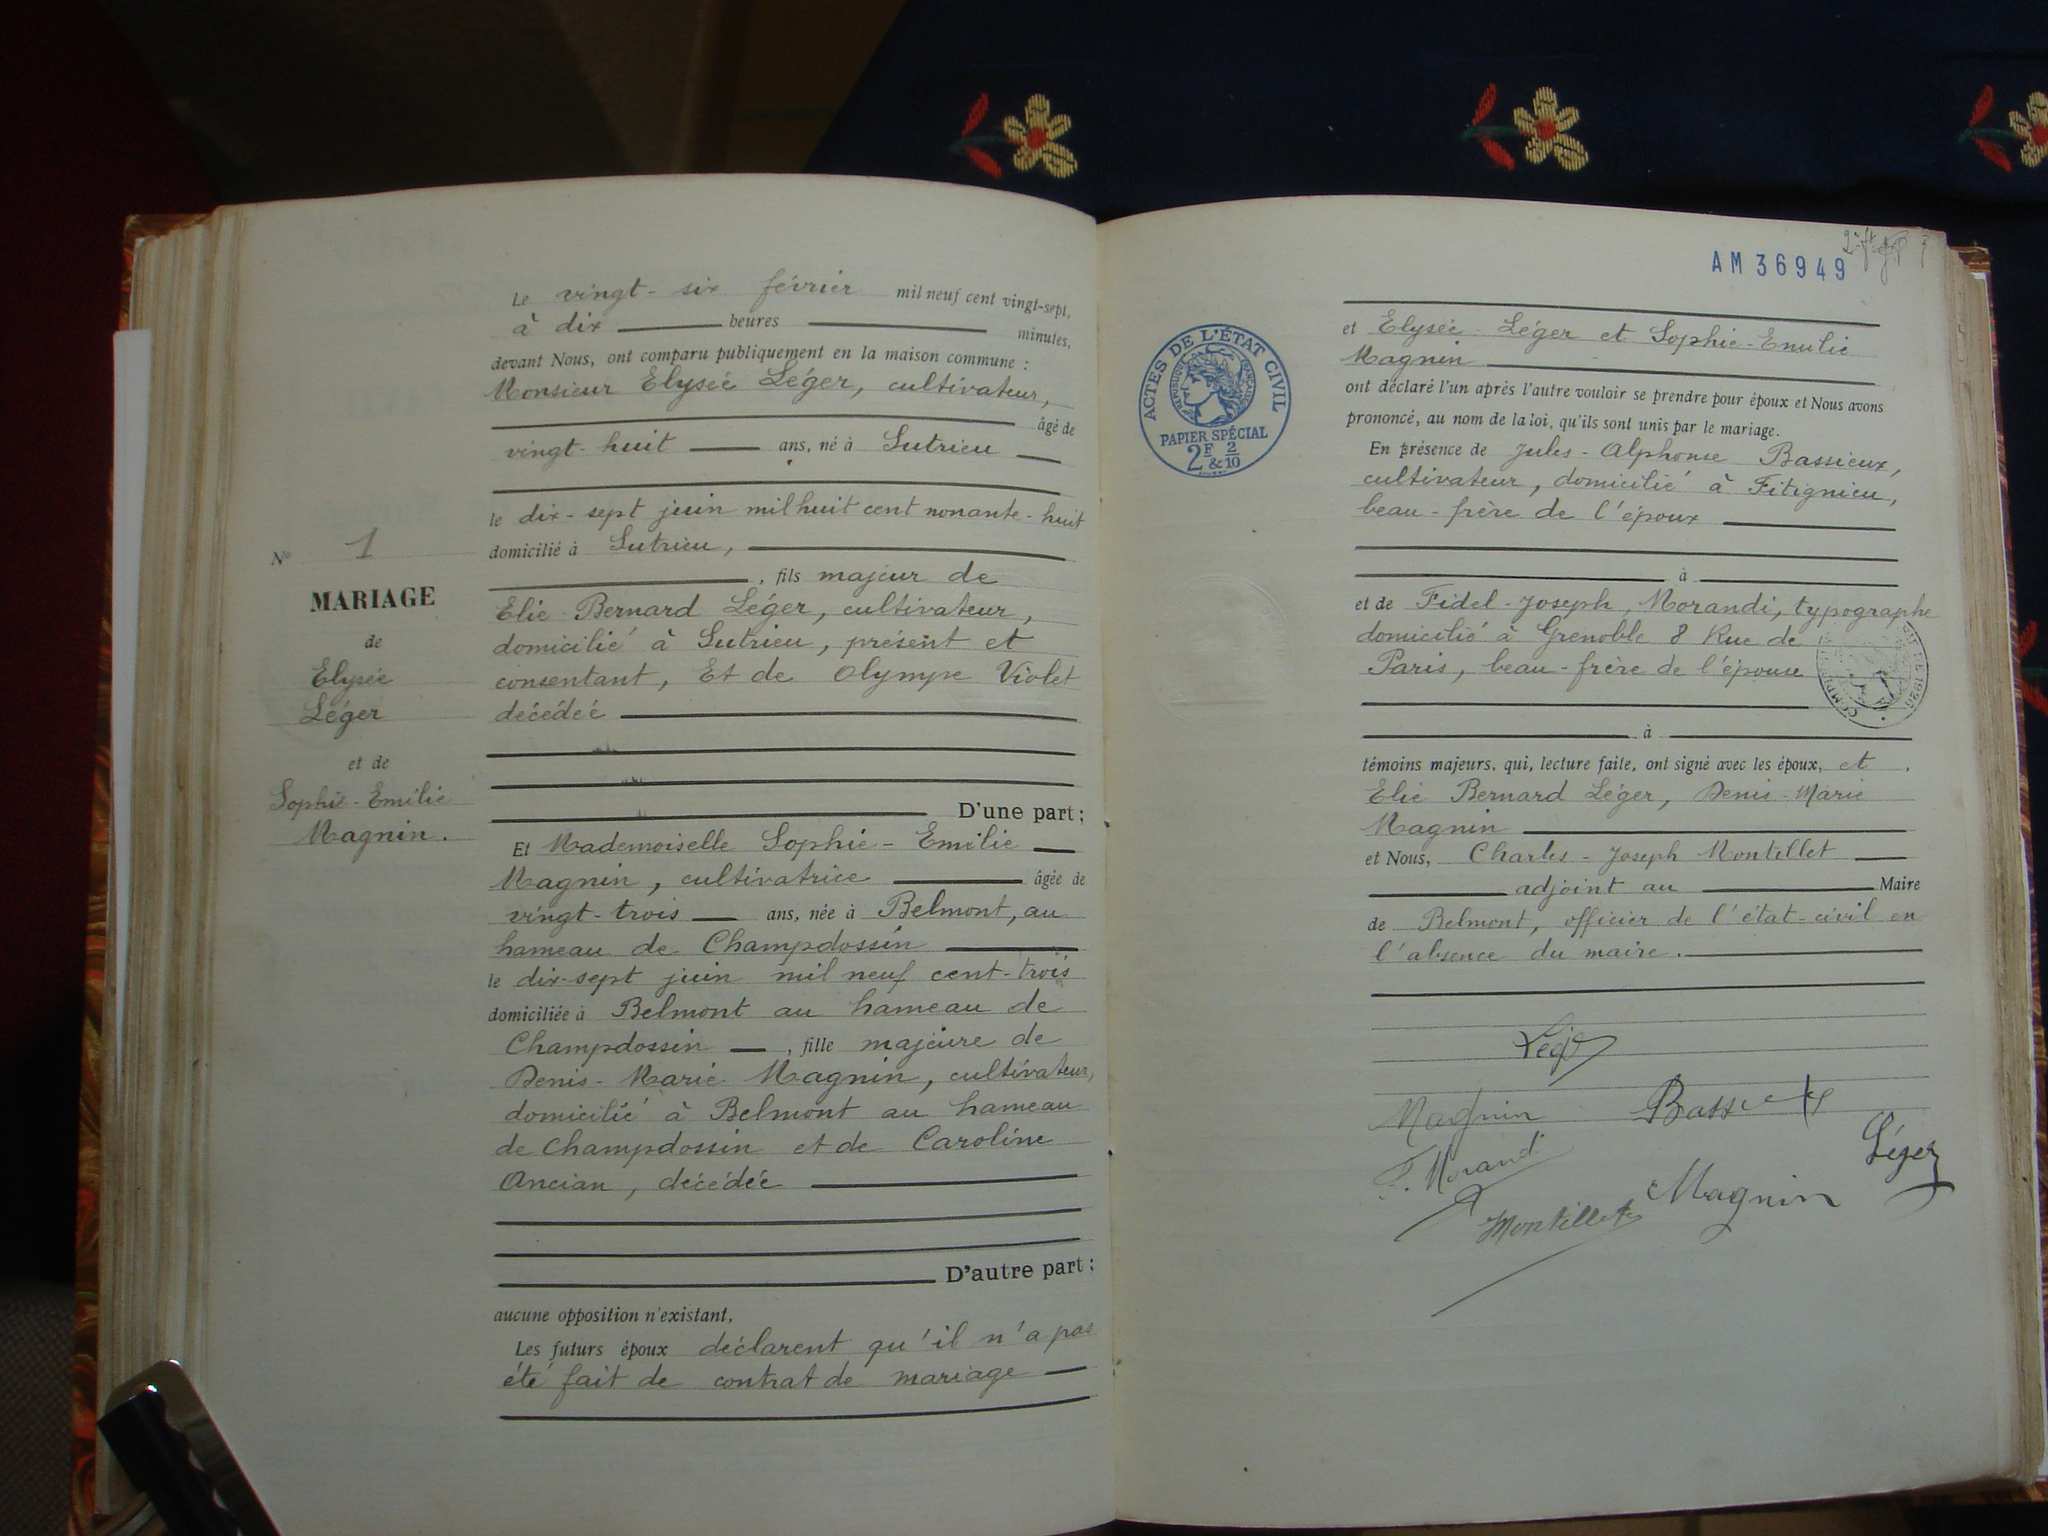 Le vingt-six février mil neuf cent vingt-sept,
à dix heures minutes,
devant Nous, ont comparu publiquement en la maison commune :
Monsieur Elysée Léger, cultivateur,
âgé de
vingt-huit ans, né à Sutrieu
le dix-sept juin mil huit cent nonante-huit
domicilié à Sutrieu,
, fils majeur de
Elie-Bernard Léger, cultivateur,
domicilié à Sutrieu, présent et
consentant, Et de Olympe Violet
décédée
D'une part ;
Et Mademoiselle Sophie-Emilie
Magnin, cultivatrice âgée de
vingt-trois ans, née à Belmont, au
hameau de Champdossin
le dix-sept juin mil neuf cent-trois
domiciliée à Belmont au hameau de
Champdossin , fille majeure de
Denis-Marie Magnin, cultivateur,
domicilié à Belmont au hameau
de Champdossin et de Caroline
Ancian, décédée
D'autre part ;
aucune opposition n'existant,
Les futurs époux déclarent qu'il n'a pas
été fait de contrat de mariage
N° 1
MARIAGE
de
Elysée
Léger
et de
Sophie-Emilie
Magnin.
AM 36949
ACTES DE L'ÉTAT CIVIL
RÉPUBLIQUE FRANÇAISE
PAPIER SPÉCIAL
2F & 2/10
et Elysée Léger et Sophie-Emilie
Magnin
ont déclaré l'un après l'autre vouloir se prendre pour époux et Nous avons
prononcé, au nom de la loi, qu'ils sont unis par le mariage.
En présence de Jules-Alphonse Bassieux,
cultivateur, domicilié à Fitignieu,
beau-frère de l'époux
à
et de Fidel-Joseph, Morandi, typographe
domicilié à Grenoble 8 Rue de
Paris, beau-frère de l'épouse
à
témoins majeurs, qui, lecture faite, ont signé avec les époux, et
Elie Bernard Léger, Denis-Marie
Magnin
et Nous, Charles-Joseph Montillet
adjoint au Maire
de Belmont, officier de l'état-civil en
l'absence du maire.
Léger
Magnin Bassieux
F. Morandi Léger
Montillet Magnin